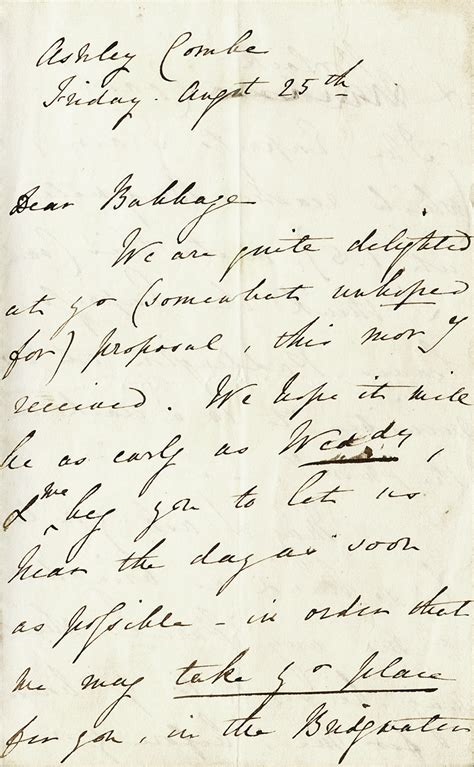 Ashley Combe
Friday. Augst 25th
Dear Babbage
We are quite delighted
at yr (somewhat unhoped
for) proposal, this morg
received. We hope it will
be as early as Wedy,
& we beg you to let us
hear the day as soon
as possible - in order that
we may take yr place
for you, in the Bridgwater